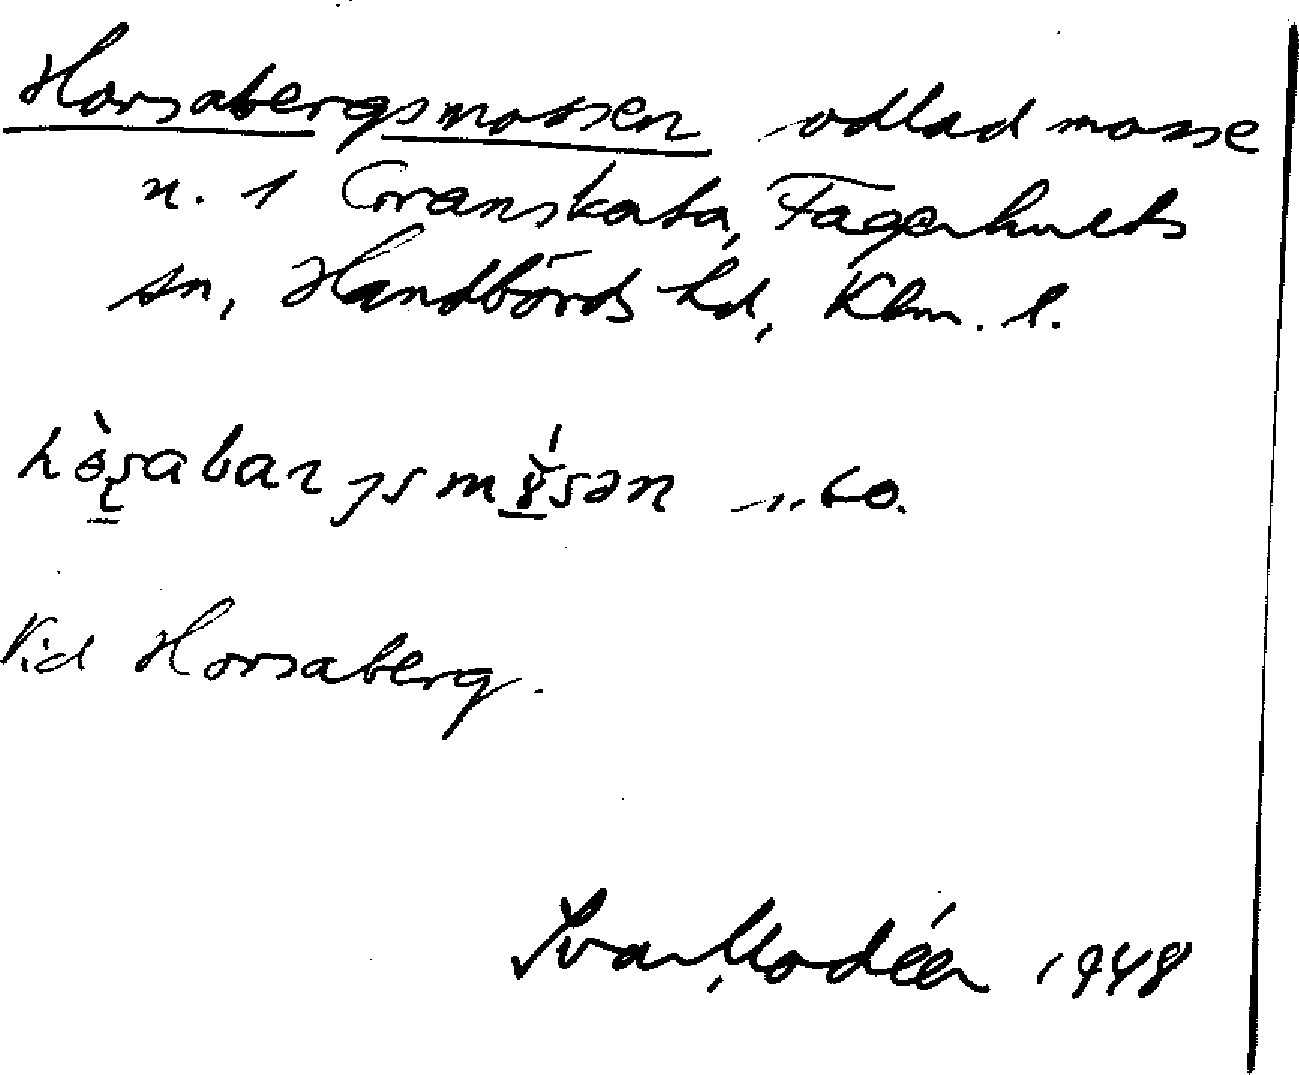 Horsabergsmossen odlad mosse
n. 1 Granskata, Fagerhults
sn, Handbörds hd, Klm. l.
Vid Horsaberg.
Ivar Modéer 1948